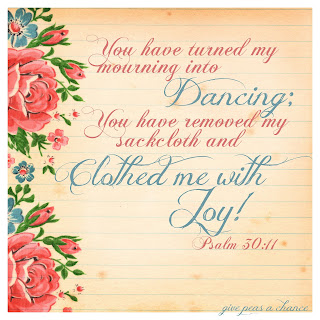 You have turned my
mourning into
Dancing;
You have removed my
sackcloth and
Clothed me with
Joy!
Psalm 30:11
give peas a chance